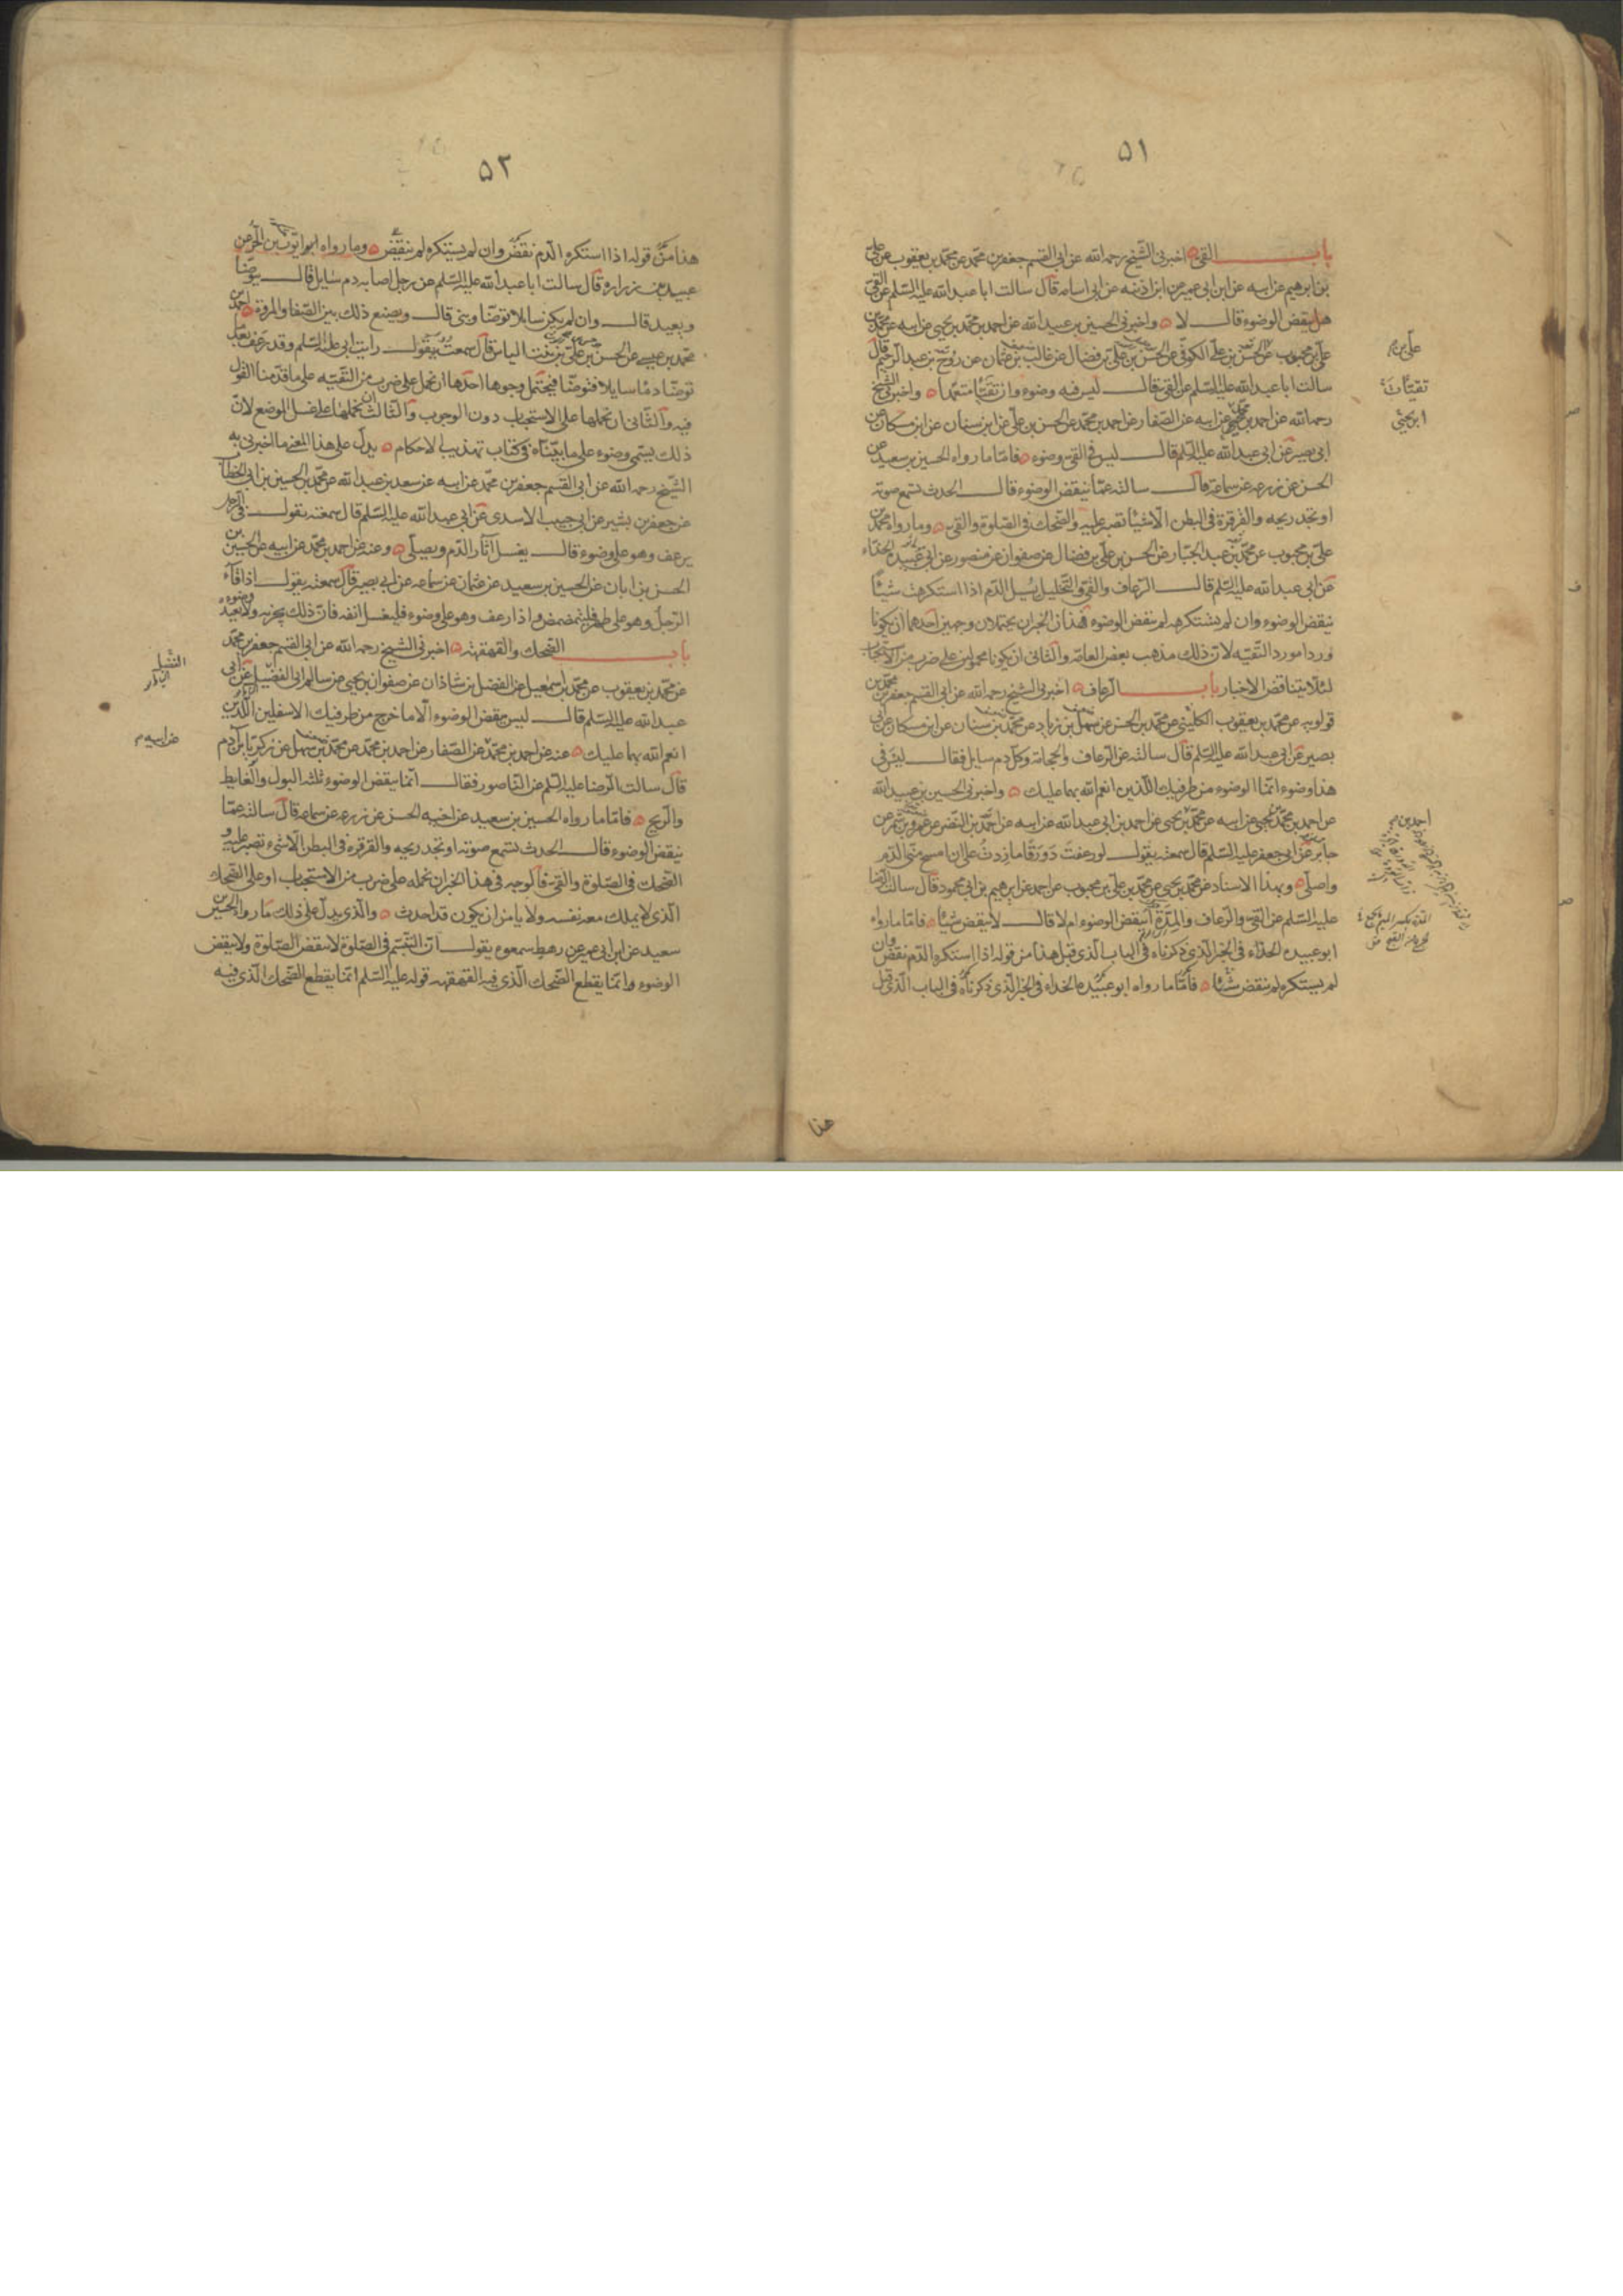 ٥١
باب القئ اخبرنى الشيخ رحمه الله عن ابى القسم جعفر بن محمد عن محمد بن يعقوب عن على
بن ابرهيم عن ابيه عن ابن ابى عمير عن ابن اذينه عن ابى اسامه قال سالت ابا عبد الله عليه السلم عن القئ
هل ينقض الوضوء قال لا واخبرنى الحسين بن عبيد الله عن احمد بن محمد بن يحيى عن ابيه عن محمد بن
على بن محبوب عن الحسن بن على الكوفى عن الحسن بن على بن فضال عن غالب بن عثمان عن روح بن عبد الرحيم قال
سالت ابا عبد الله عليه السلم عن القئ قال ليس فيه وضوء وان تقيأ متعمدا واخبرنى الشيخ
رحمه الله عن احمد بن محمد عن ابيه عن الصفار عن احمد بن محمد عن الحسن بن على عن ابن سنان عن ابن مسكان عن
ابى بصير عن ابى عبد الله عليه السلم قال ليس فى القئ وضوء فاما ما رواه الحسين بن سعيد عن
الحسن عن زرعه عن سماعة قال سالته عما ينقض الوضوء قال الحدث تسمع صوته
او تجد ريحه والقرقرة فى البطن الا شيئا تصبر عليه والضحك فى الصلوة والقئ وما رواه محمد بن
على بن محبوب عن محمد بن عبد الجبار عن الحسن بن على بن فضال عن صفوان عن منصور عن ابى عبيده الحذاء
عن ابى عبد الله عليه السلم قال الرعاف والقئ والتخليل يسيل الدم اذا استكرهت شيئا
ينقض الوضوء وان لم يستكرهه لم ينقض الوضوء فهذان الخبران يحتملان وجهين احدهما ان يكونا
وردا مورد التقيه لان ذلك مذهب بعض العامة والثانى ان يكونا محمولين على ضرب من الاستحباب
لئلا يتناقض الاخبار باب الرعاف اخبرنى الشيخ رحمه الله عن ابى القسم جعفر بن محمد بن
قولويه عن محمد بن يعقوب الكلينى عن محمد بن الحسن عن سهل بن زياد عن محمد بن سنان عن ابن مسكان عن ابى
بصير عن ابى عبد الله عليه السلم قال سالته عن الرعاف والحجامة وكل دم سايل فقال ليس فى
هذا وضوء انما الوضوء من طرفيك اللذين انعم الله بهما عليك واخبرنى الحسين بن عبيد الله
عن احمد بن محمد بن يحيى عن ابيه عن محمد بن يحيى عن احمد بن ابى عبد الله عن ابيه عن احمد بن النضر عن عمرو بن شمر عن
جابر عن ابى جعفر عليه السلم قال سمعته يقول لو رعفت دورقا ما زدت على ان امسح منى الدم
واصلى وبهذا الاسناد عن محمد بن يحيى عن محمد بن على بن محبوب عن احمد عن ابرهيم بن ابى محمود قال سالت الرضا
عليه السلم عن القئ والرعاف والمدة اينقض الوضوء ام لا قال لا ينقض شيئا فاما ما رواه
ابو عبيده الحذاء فى الخبر الذى ذكرناه فى الباب الذى قبل هذا من قوله اذا استكره الدم نقض وان
لم يستكره لم ينقض شيئا فاما ما رواه ابو عبيده الحذاء فى الخبر الذى ذكرناه فى الباب الذى قبل
هذا
على بن
تقيأت
ابن يحيى
احمد بن
٥٢
هذا من قوله اذا استكره الدم نقض وان لم يستكره لم ينقض وما رواه ايوب بن الحر عن
عبيد بن زراره قال سالت ابا عبد الله عليه السلم عن رجل اصابه دم سايل قال يتوضأ
ويعيد قال وان لم يكن سايلا توضأ وبنى قال ويصنع ذلك بين الصفا والمروة احمد بن
محمد بن عيسى عن الحسن بن على بن بنت الياس قال سمعته يقول رايت ابى عليه السلم وقد رعف بعد ما
توضأ دما سايلا فتوضأ فيحتمل وجوها احدها ان نحمل على ضرب من التقيه على ما قدمنا القول
فيه والثانى ان نحملها على الاستحباب دون الوجوب والثالث ان نحملها على غسل الموضع لان
ذلك يسمى وضوء على ما بيناه فى كتاب تهذيب الاحكام يدل على هذا المعنى ما اخبرنى به
الشيخ رحمه الله عن ابى القسم جعفر بن محمد عن ابيه عن سعد بن عبد الله عن محمد بن الحسين بن ابى الخطاب
عن جعفر بن بشير عن ابى حبيب الاسدى عن ابى عبد الله عليه السلم قال سمعته يقول فى الرجل
يرعف وهو على وضوء قال يغسل آثار الدم ويصلى وعنه عن احمد بن محمد عن ابيه عن الحسين بن
الحسن بن ابان عن الحسين بن سعيد عن عثمان عن سماعه عن ابى بصير قال سمعته يقول اذا قاء
الرجل وهو على طهر فليتمضمض واذا رعف وهو على وضوء فليغسل انفه فان ذلك يجزيه ولا يعيد وضوءه
باب الضحك والقهقهه اخبرنى الشيخ رحمه الله عن ابى القسم جعفر بن محمد
عن محمد بن يعقوب عن محمد بن اسمعيل عن الفضل بن شاذان عن صفوان بن يحيى عن سالم ابى الفضيل عن ابى
عبد الله عليه السلم قال ليس ينقض الوضوء الا ما خرج من طرفيك الاسفلين اللذين
انعم الله بهما عليك عنه عن احمد بن محمد عن الصفار عن احمد بن محمد عن محمد بن سهل عن زكريا بن آدم
قال سالت الرضا عليه السلم عن الناصور فقال انما ينقض الوضوء ثلثه البول والغايط
والريح فاما ما رواه الحسين بن سعيد عن اخيه الحسن عن زرعه عن سماعه قال سالته عما
ينقض الوضوء قال الحدث تسمع صوته او تجد ريحه والقرقره فى البطن الا شيء تصبر عليه و
الضحك فى الصلوة والقئ فالوجه فى هذا الخبر ان نحمله على ضرب من الاستحباب او على الضحك
الذى لا يملك معه نفسه ولا يامن ان يكون قد احدث والذى يدل على ذلك ما رواه الحسين بن
سعيد عن ابن ابى عمير عن رهط سمعوه يقول ان التبسم فى الصلوة لا ينقض الصلوة ولا ينقض
الوضوء وانما يقطع الضحك الذى فيه القهقهه قوله عليه السلم انما يقطع الضحك الذى فيه
عن ابيه